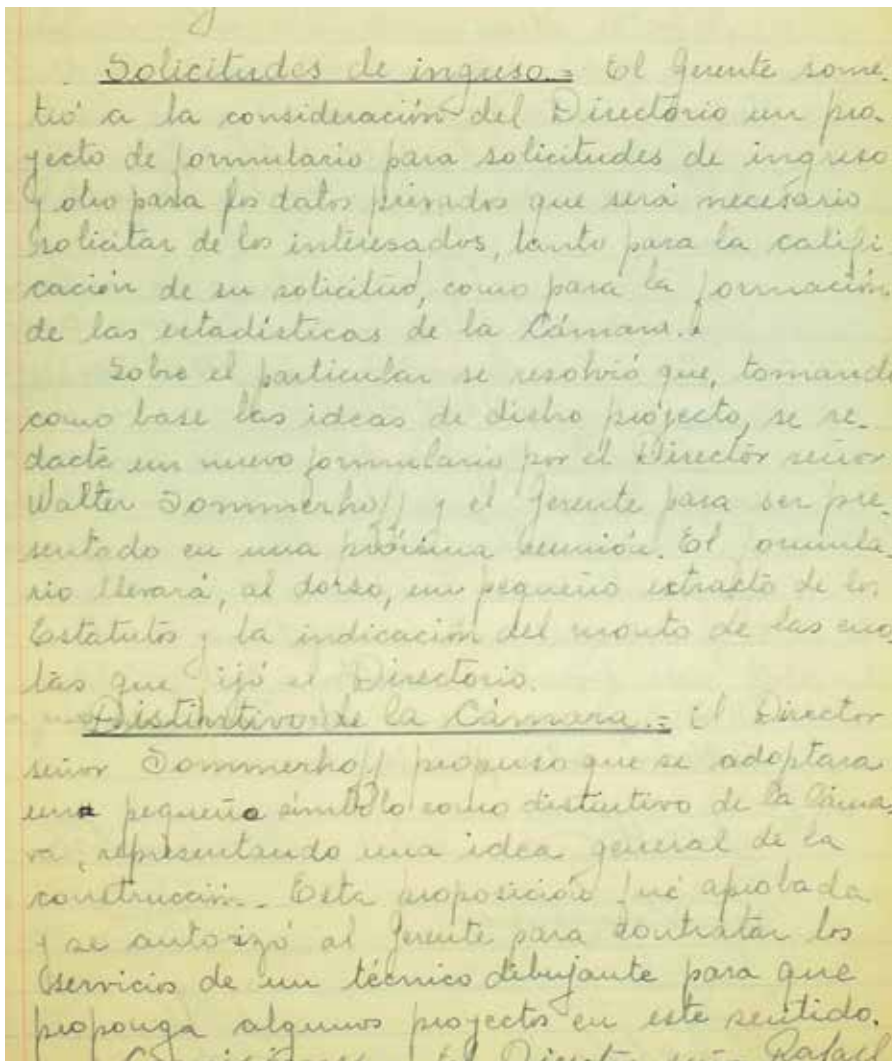 Solicitudes de ingreso.= El Gerente some-
tió a la consideración del Directorio un pro-
yecto de formulario para solicitudes de ingreso
y otro para los datos privados que será necesario
solicitar de los interesados, tanto para la califi-
cación de su solicitud, como para la formación
de las estadísticas de la Cámara.
Sobre el particular se resolvió que, tomando
como base las ideas de dicho proyecto, se re-
dacte un nuevo formulario por el Director señor
Walter Sommerhoff y el Gerente para ser pre-
sentado en una próxima reunión. El formula-
rio llevará, al dorso, un pequeño extracto de los
Estatutos y la indicación del monto de las cuo-
tas que fijó el Directorio.
Distintivo de la Cámara.= El Director
señor Sommerhoff propuso que se adoptara
una pequeño símbolo como distintivo de la Cáma-
ra, representando una idea general de la
construcción. Esta proposición fué aprobada
y se autorizó al Gerente para contratar los
servicios de un técnico dibujante para que
proponga algunos proyectos en este sentido.
El Director Rafael